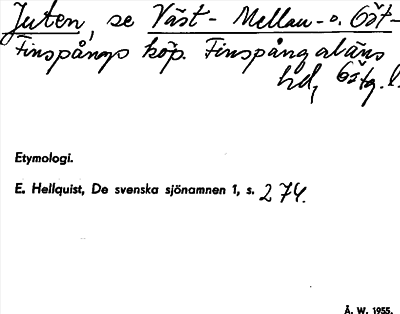 Juten, se Väst- Mellan- o. Öst-
Finspångs köp. Finspånga läns
hd, Östg. l.
Etymologi.
E. Hellquist, De svenska sjönamnen 1, s. 274.
Å. W. 1955.